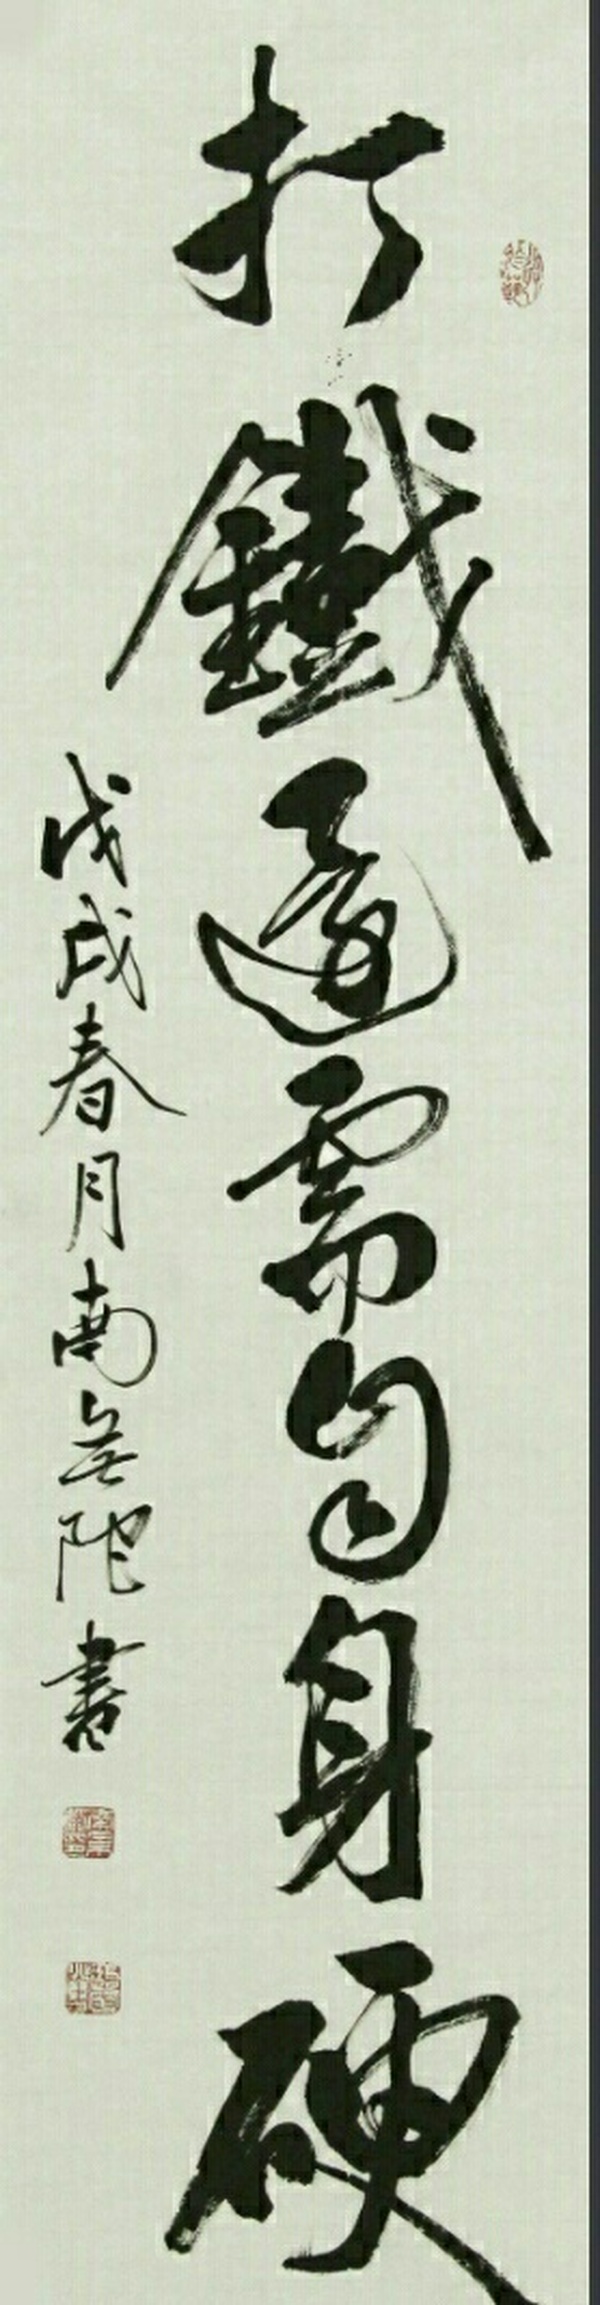 打鐵還需自身硬
戊戌春月南無陀書